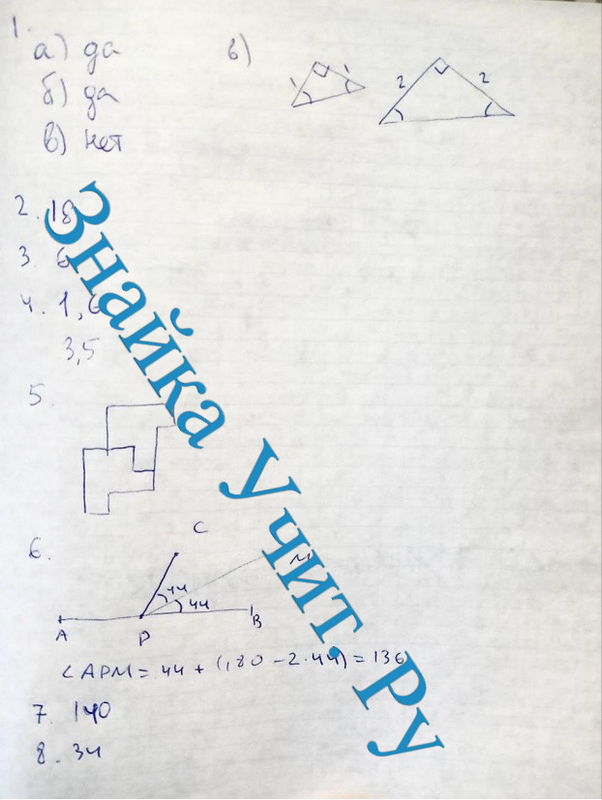 1.
а) да
б) да
в) нет
в)
1 1
2 2
2. 18
3. 6
4. 1,6
3,5
5.
6.
C
M
44
44
A P B
∠APM = 44 + (180 - 2·44) = 136
7. 140
8. 34
Знайка Учит. Ру